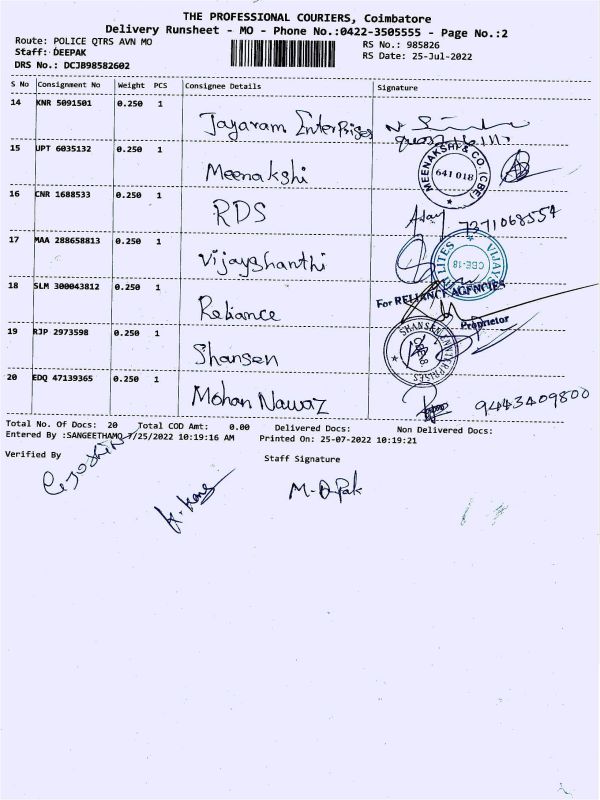 THE PROFESSIONAL COURIERS, Coimbatore
Delivery Runsheet - MO - Phone No.:0422-3505555 - Page No.:2
Route: POLICE QTRS AVN MO
RS No.: 985826
Staff: DEEPAK
RS Date: 25-Jul-2022
DRS No.: DCJB98582602
S No Consignment No Weight PCS Consignee Details Signature
14 KNR 5091501 0.250 1 Jayaram Enterprises
15 UPT 6035132 0.250 1 Meenakshi
MEENAKSHI & CO (CBE) 641 018
16 CNR 1688533 0.250 1 RDS
Ajay 7371068554
17 MAA 288658813 0.250 1 Vijayshanthi
LITES VIJAY CBE-18
18 SLM 300043812 0.250 1 Reliance
For RELIANCE AGENCIES
Proprietor
19 RJP 2973598 0.250 1 Shansen
SHANSEN ENTERPRISES
20 EDQ 47139365 0.250 1 Mohan Nawaz
9443409800
Total No. Of Docs: 20 Total COD Amt: 0.00 Delivered Docs: Non Delivered Docs:
Entered By :SANGEETHAMO 7/25/2022 10:19:16 AM Printed On: 25-07-2022 10:19:21
Verified By
Staff Signature
M. D. Pak